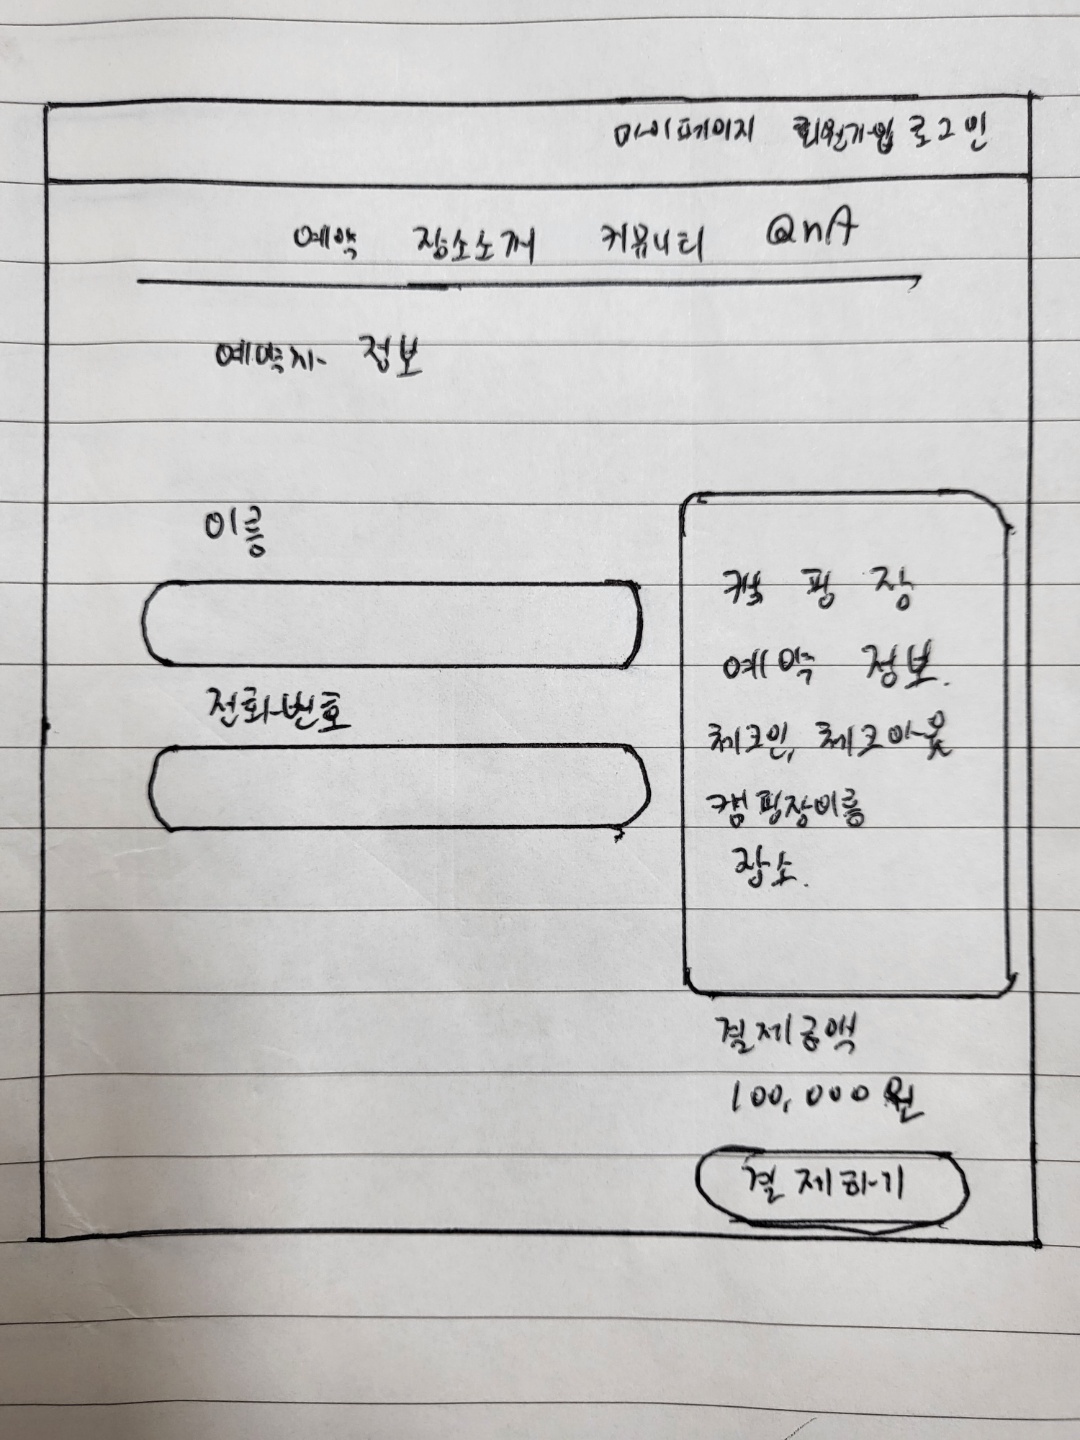 마이페이지 회원가입 로그인
예약 장소소개 커뮤니티 QnA
예약자 정보
이름
전화번호
캠핑장
예약 정보.
체크인, 체크아웃
캠핑장이름
장소.
결제금액
100,000원
결제하기